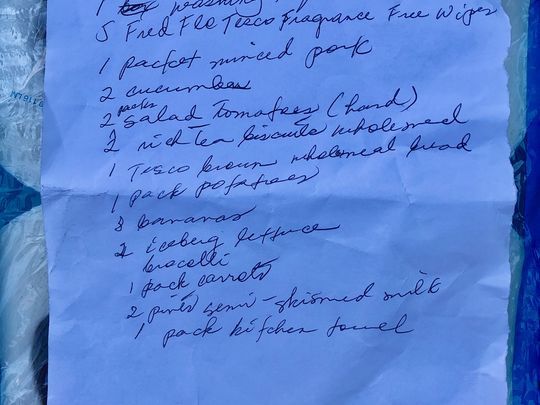 1 box washing
5 Fred Flo Tesco Fragrance Free Wipes
1 packet minced pork
2 cucumber
2 packs Salad Tomatoes (hard)
2 rich Tea biscuits wholemeal
1 Tesco brown wholemeal bread
1 pack potatoes
8 bananas
2 iceberg lettuce
brocolli
1 pack carrots
2 pints semi-skimmed milk
1 pack kitchen towel